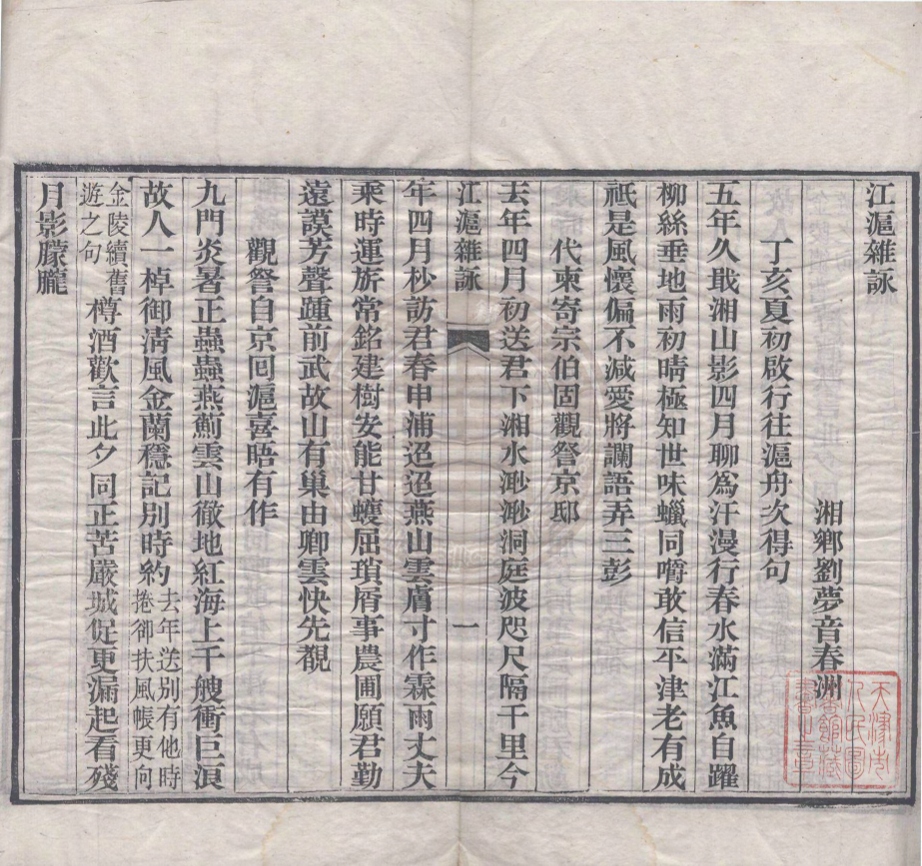 江滬雜詠
湘鄉劉夢音春洲
丁亥夏初啟行往滬舟次得句
五年久戢湘山影四月聊爲汗漫行春水滿江魚白躍
柳絲垂地雨初晴極知世味蠟同嚼敢信平津老有成
祇是風懷偏不減愛將讕語弄三彭
代柬寄宗伯固觀詧京邸
去年四月初送君下湘水渺渺洞庭波咫尺隔千里今
江滬雜詠
一
年四月杪訪君春申浦迢迢燕山雲膚寸作霖雨丈夫
乘時運旂常銘建樹安能甘蠖屈瑣屑事農圃願君勤
遠謨芳聲踵前武故山有巢由卿雲快先覩
觀詧自京回滬喜晤有作
九門炎暑正蟲蟲燕薊雲山徹地紅海上千艘衝巨浪
故人一棹御淸風金蘭穩記別時約去年送別有他時捲御扶風帳更向
金陵續舊遊之句樽酒歡言此夕同正苦嚴城促更漏起看殘
月影朦朧
天津市人民圖書館藏書之章